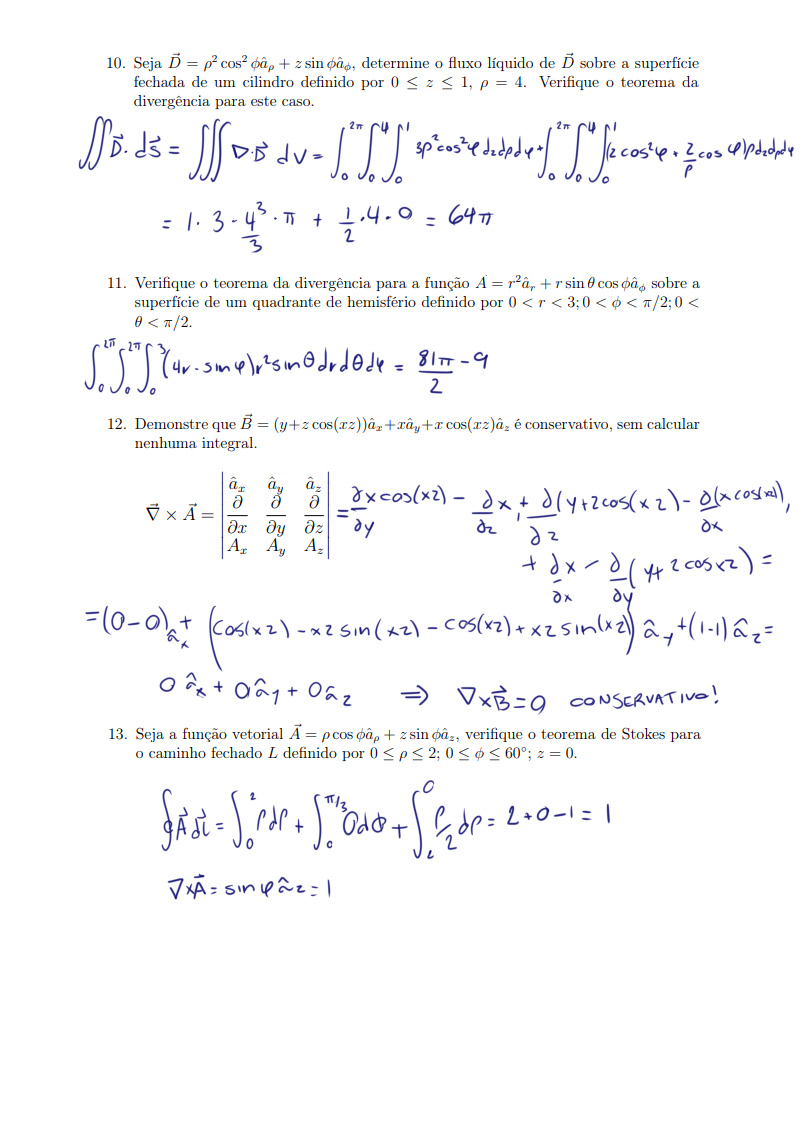 10. Seja D⃗ = ρ² cos² ϕâρ + z sin ϕâϕ, determine o fluxo líquido de D⃗ sobre a superfície
fechada de um cilindro definido por 0 ≤ z ≤ 1, ρ = 4. Verifique o teorema da
divergência para este caso.
∬D⃗. ds⃗ = ∭ ∇·D⃗ dV = ∫₀^2π ∫₀^4 ∫₀^1 3ρ²cos²φ dzdρdφ + ∫₀^2π ∫₀^4 ∫₀^1 (z cos²φ + z/ρ cos φ)ρdzdρdφ
= 1 · 3 · 4³/3 · π + 1/2 · 4 · 0 = 64π
11. Verifique o teorema da divergência para a função A = r²âr + r sin θ cos ϕâϕ sobre a
superfície de um quadrante de hemisfério definido por 0 < r < 3; 0 < ϕ < π/2; 0 <
θ < π/2.
∫₀^2π ∫₀^2π ∫₀^3 (4r - sin φ)r² sin θ dr dθ dφ = 81π/2 - 9
12. Demonstre que B⃗ = (y+z cos(xz))âx+xây+x cos(xz)âz é conservativo, sem calcular
nenhuma integral.
∇⃗ × A⃗ = | âx ây âz ; ∂/∂x ∂/∂y ∂/∂z ; Ax Ay Az | = ∂x cos(xz)/∂y - ∂x/∂z , + ∂(y+zcos(xz)/∂z - ∂(x cos(xz)/∂x ,
+ ∂x/∂x - ∂/∂y (y+ z cos xz) =
=(0-0)âx + (cos(xz) - xz sin(xz) - cos(xz) + xz sin(xz)) ây +(1-1) âz =
0 âx + 0ây + 0âz ⇒ ∇×B⃗=0 CONSERVATIVO!
13. Seja a função vetorial A⃗ = ρ cos ϕâρ + z sin ϕâz, verifique o teorema de Stokes para
o caminho fechado L definido por 0 ≤ ρ ≤ 2; 0 ≤ ϕ ≤ 60°; z = 0.
∮A⃗ dl⃗ = ∫₀^2 ρdρ + ∫₀^π/3 0dϕ + ∫₂^0 ρ/2 dρ = 2+0-1 = 1
∇×A⃗ = sin φ âz = 1